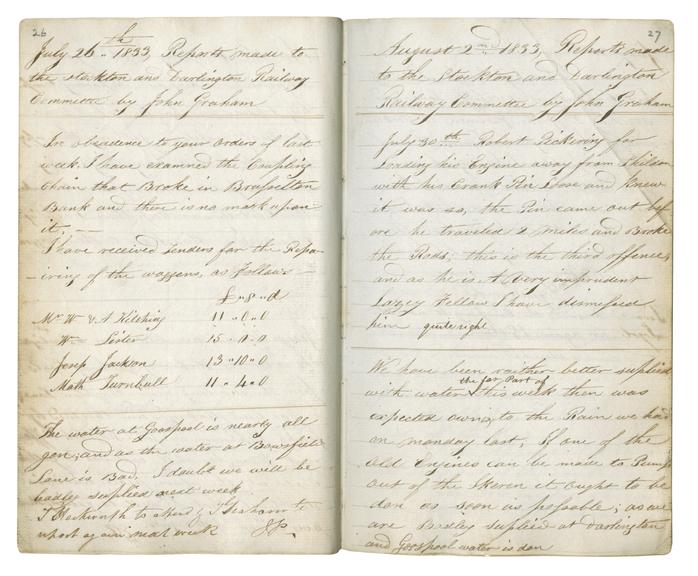 26
July 26th 1833, Reports made to
the Stockton and Darlington Railway
Committee by John Graham
In obedence to your orders of last
week. I have examined the Coupling
Chain that Broke in Brusselton
Bank and there is no mark upon
it.
I have received Tenders for the Repa-
-iring of the waggons, as Follows
£ " s " d
Mr W & A Kitching 11 " 0 " 0
Wm Lister 15 " 0 " 0
Josep Jackson 13 " 10 " 0
Math Turnbull 11 " 4 " 0
The water at Goospool is nearly all
gon, and as the water at Bowsfield
Lane is Bad, I doubt we will be
badley supplied next week
T Hackworth to attend & J Graham to
report again next week
27
August 2nd 1833, Reports made
to the Stockton and Darlington
Railway Committee by John Graham
July 30th Robert Pickering for
Loading his Engine away from Shildon
with his Crank Pin Lose and knew
it was so, the Pin came out bef
ore he traveled 2 miles and Broke
the Rods, this is the third offence,
and as he is A Very imprudent
Lazey Fellow I have dismissed
him quite right
We have been raither better supplied
with water the for Part of this week then was
expected owing to the Rain we had
on monday last, If one of the
old Engines can be made to Pump
out of the Skeren it ought to be
don as soon as possable; as we
are Badley supplied at Darlington
and Goospool water is don